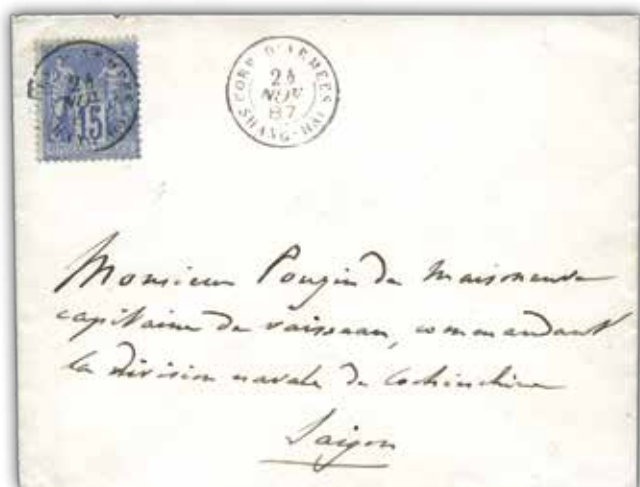 CORR. D'ARMÉES
24
NOV
87
SHANG-HAI
24
NOV
15
Monsieur Pougin de Maisonneuve
capitaine de vaisseau, commandant
la division navale de Cochinchine
Saigon